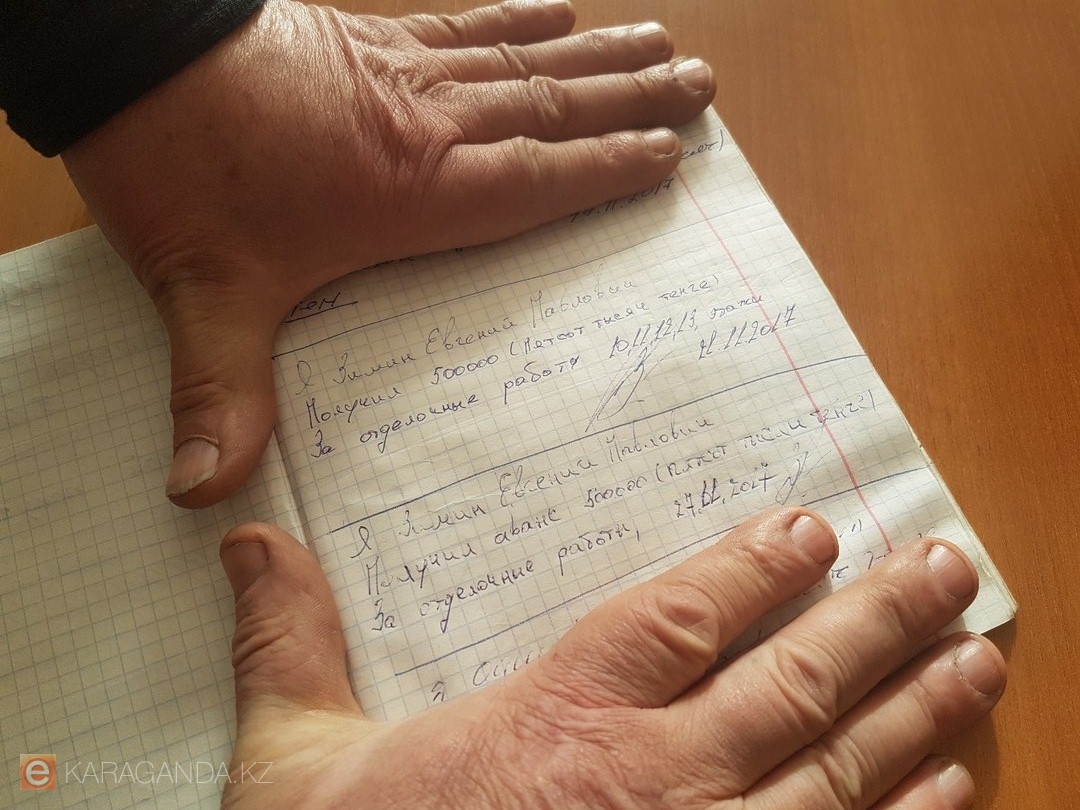 14.11.2017
Я Зимин Евгений Павлович
Получил 500000 (Пятсот тысяч тенге)
За отделочные работы 10,11,12,13, этажи
21.11.2017
Я Зимин Евгений Павлович
Получил аванс 500000 (Пятсот тысяч тенге)
За отделочные работы, 27.11.2017
Я
e KARAGANDA.KZ